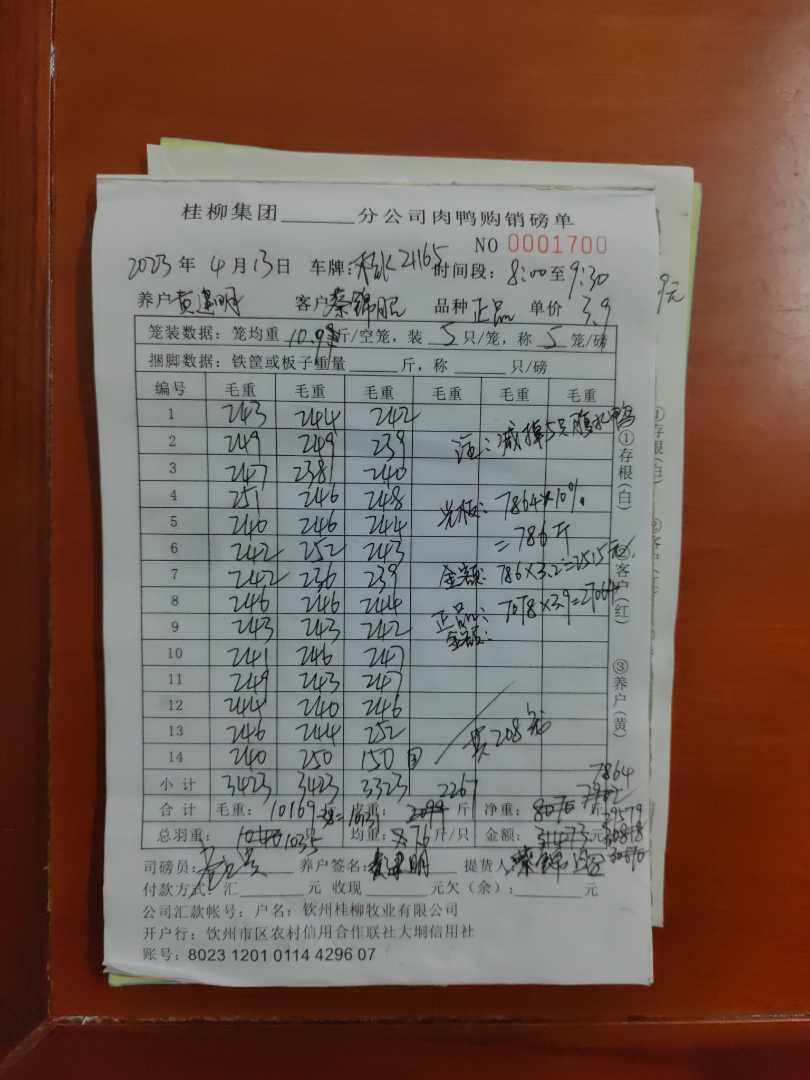 桂柳集团______分公司肉鸭购销磅单
NO 0001700
2023年 4月13日 车牌: 24165 时间段: 8:00至9:30
养户 黄建明 客户 蔡锦昭 品种 正品 单价 3.9
笼装数据: 笼均重 10.9 斤/空笼, 装 5 只/笼, 称 5 笼/磅
捆脚数据: 铁筐或板子重量______斤, 称______只/磅
编号 毛重 毛重 毛重 毛重 毛重 毛重
1 243 244 242
2 249 249 239 注: 减掉5只 鸭
3 247 238 240
4 251 246 248 光板: 7864×10%
5 240 246 244 =786斤
6 242 252 243
7 242 236 239 金额: 786×3.2=2515元
8 246 246 244 正品: 7078×3.9=27604
9 243 243 242 金额:
10 241 246 247
11 249 243 247
12 244 240 246
13 246 244 252 共208笼
14 240 250 150
小计 3423 3423 3323 2267
7864
合计 毛重: 10169 皮重: 斤 净重: 8070 斤
29579
总羽重: 1035 只 均重: 7.6 斤/只 金额: 31473 元
司磅员: 养户签名: 黄建明 提货人: 蔡锦昭
付款方式: 汇______元 收现______元欠(余):______元
公司汇款帐号: 户名: 钦州桂柳牧业有限公司
开户行: 钦州市区农村信用合作联社大垌信用社
账号: 8023 1201 0114 4296 07
①存根(白)
②客户(红)
③养户(黄)
9元
①存根(白)